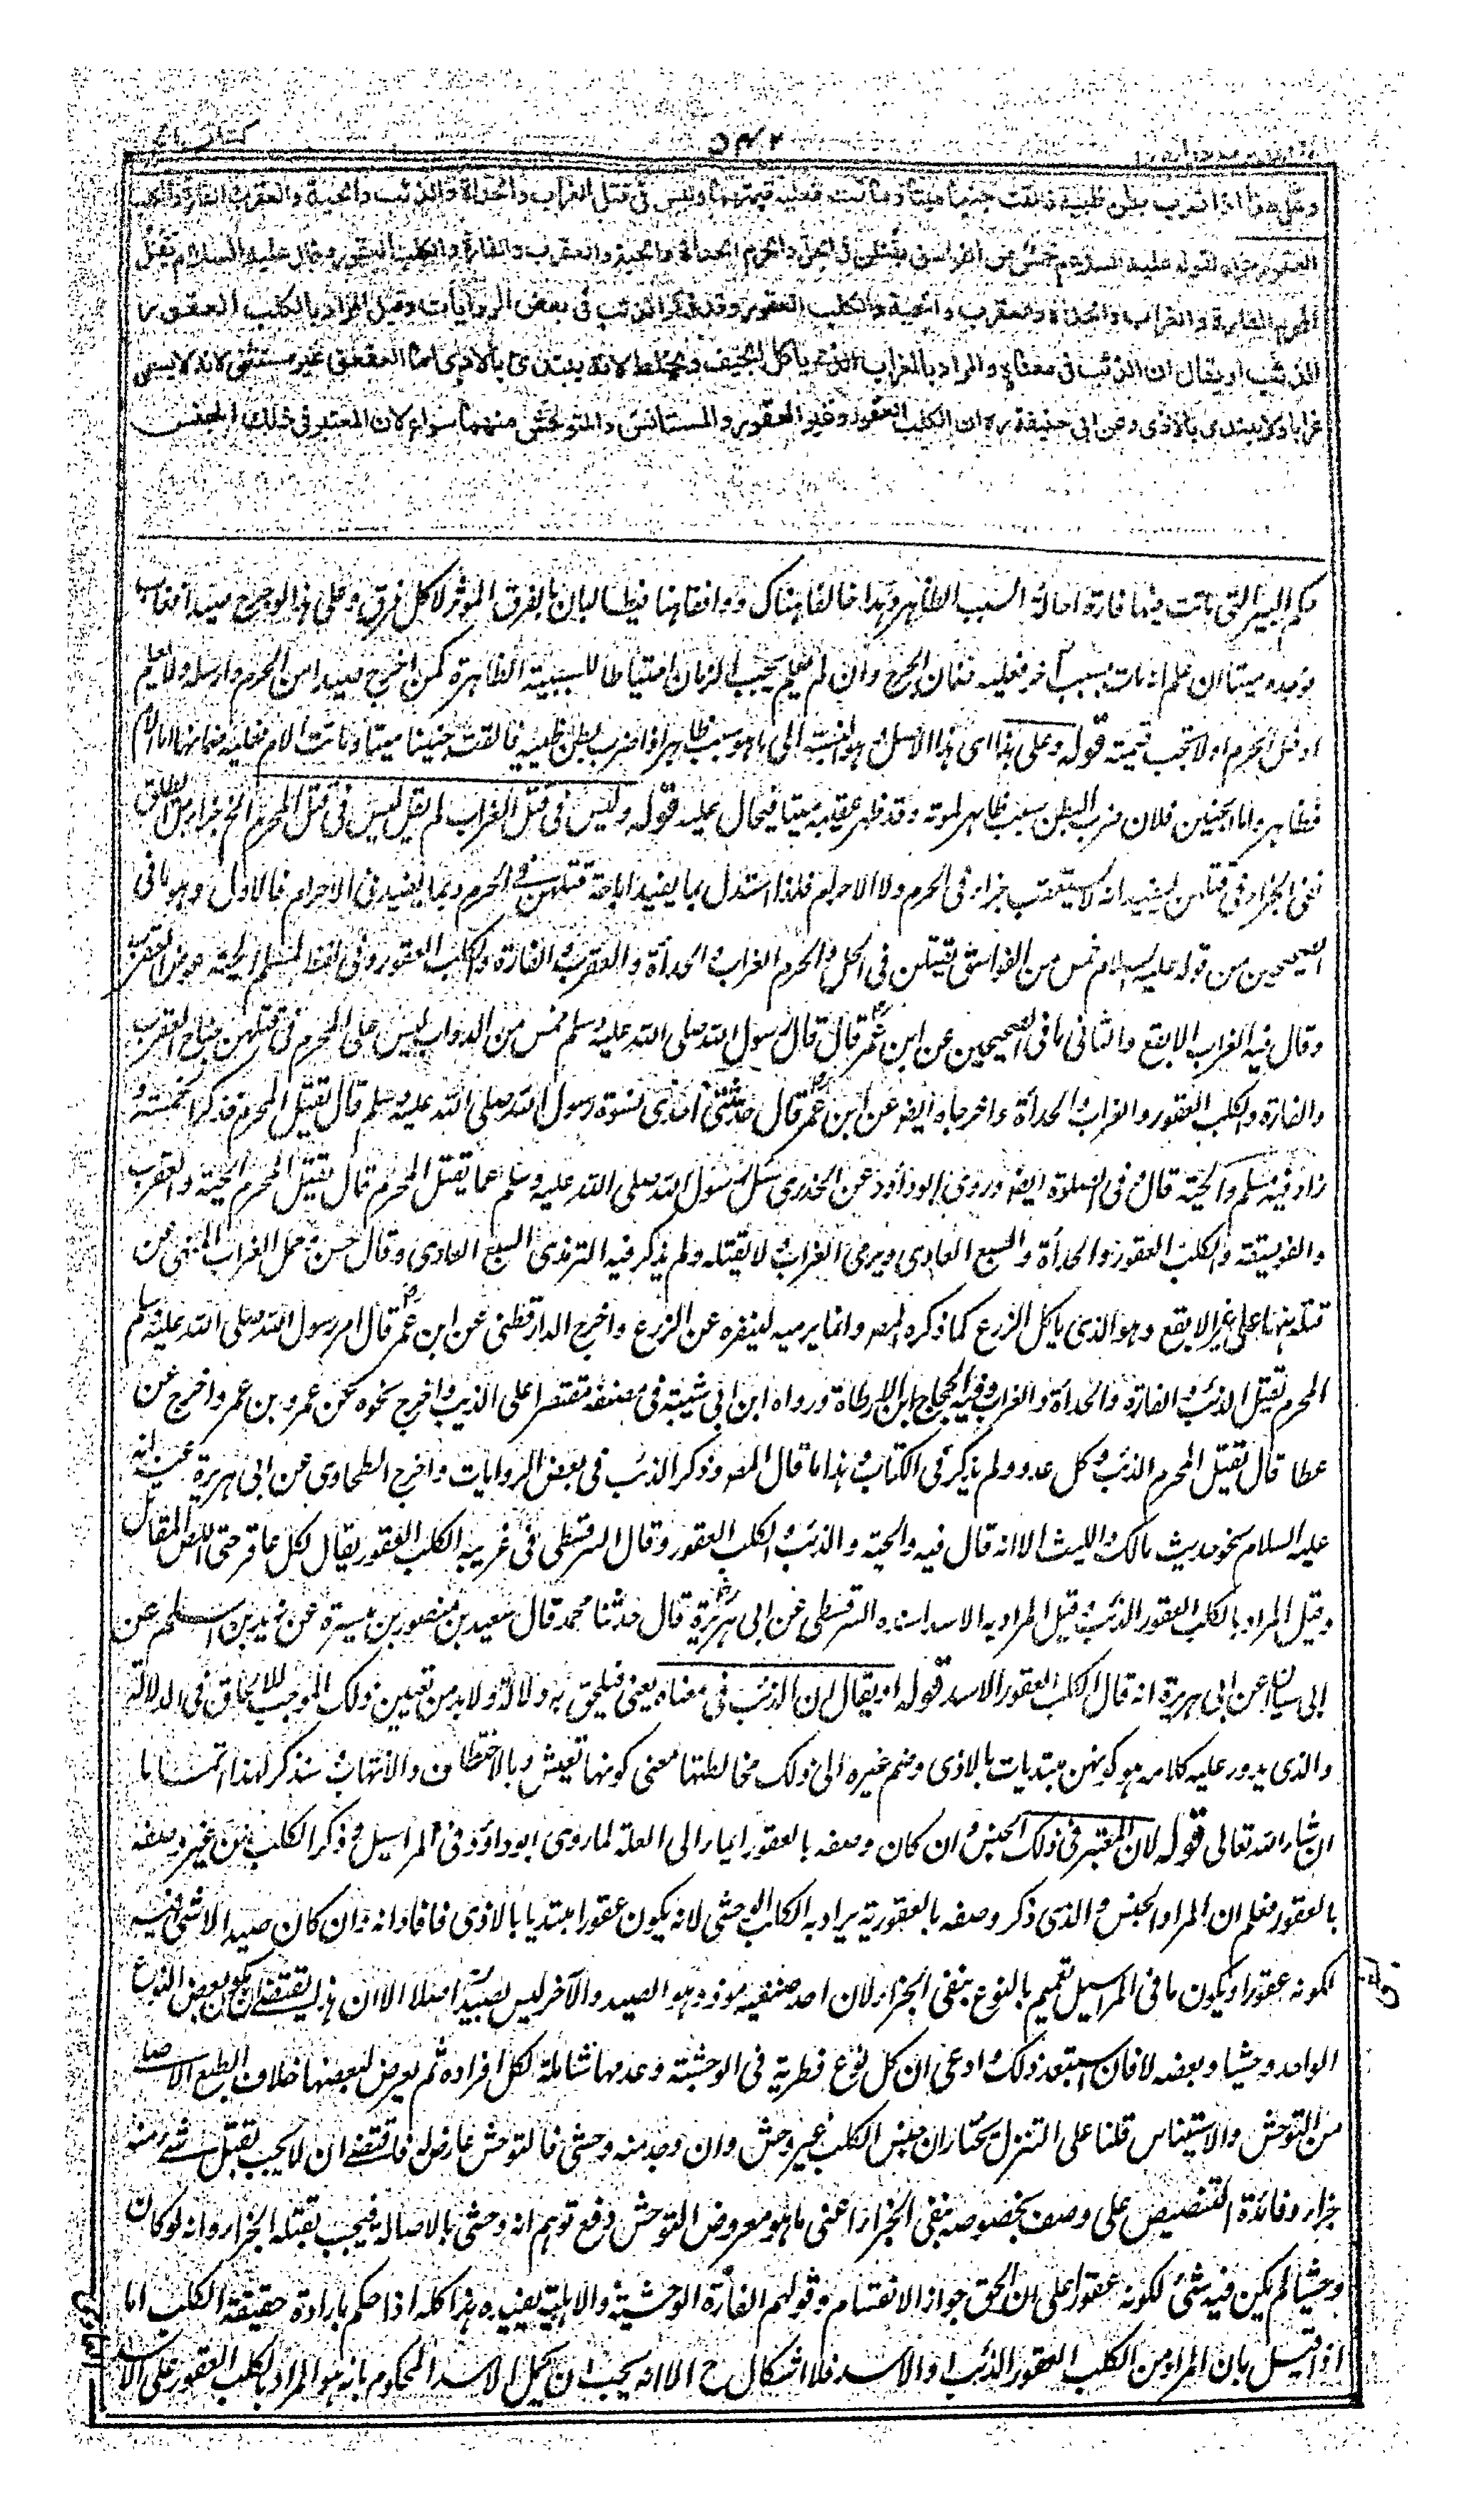 كتاب الحج
وعلى هذا اذا ضرب بطن ظبية فالقت جنينا ميتا وماتت فعليه قيمتهما وليس فى قتل الغراب والحدأة والذئب والحية والعقرب والفارة والكلب
العقور جزاء لقوله عليه السلام خمس من الفواسق يقتلن فى الحل والحرم الحدأة والحية والعقرب والفارة والكلب العقور وقال عليه السلام يقتل
المحرم الفارة والغراب والحدأة والعقرب والحية والكلب العقور وقد ذكر الذئب فى بعض الروايات وقيل المراد بالكلب العقور
الذئب او يقال ان الذئب فى معناه والمراد بالغراب الذى ياكل الجيف ويخلط لانه يبتدى بالاذى اما العقعق غير مستثنى لانه لا يسمى
غرابا ولا يبتدى بالاذى وعن ابى حنيفة ره ان الكلب العقور وغير العقور والمستانس والمتوحش منهما سواء لان المعتبر فى ذلك الجنس
حكم البير التى ماتت فيها فارة احالة السبب الظاهر وهذا خالفا هناك ووافقا هنا فيطالبان بالفرق الموثر لا كل فرق وعلى هذا لو جرح صيدا فغاب
فوجده ميتا ان علم انه مات بسبب آخر فعليه ضمان الجرح وان لم يعلم يجب الضمان احتياطا للسببية الظاهرة كمن اخرج صيدا من الحرم وارسله ولا يعلم
ادخل الحرم او لا تجب قيمته قوله وعلى هذا اى هذا الاصل وهو النسبة الى ما هو سبب ظاهر اذا ضرب بطن ظبية فالقت جنينا ميتا وماتت الام فعليه ضمانهما اما الام
فظاهر واما الجنين فلان ضرب البطن سبب ظاهر لموته وقد ظهر عقيبه ميتا فيحال عليه قوله وليس فى قتل الغراب لم يقل ليس فى قتل المحرم الخ جزاء بل اطلق
نفى الجزاء فى قتلهن ليفيد انه لا يستعقب جزاء فى الحرم ولا الاحرام فلذا استدل بما يفيد اباحة قتلهن فى الحرم وبما يفيد فى الاحرام فالاول وهو ما فى
الصحيحين من قوله عليه السلام خمس من الفواسق يقتلن فى الحل والحرم الغراب والحدأة والعقرب والفارة والكلب العقور وفى لفظ لمسلم الحية عوض العقرب
وقال فيه الغراب الابقع والثانى ما فى الصحيحين عن ابن عمر قال قال رسول الله صلى الله عليه وسلم خمس من الدواب ليس على المحرم فى قتلهن جناح العقرب
والفارة والكلب العقور والغراب والحدأة واخرجاه ايضا عن ابن عمر قال حدثتنى احدى نسوة رسول الله صلى الله عليه وسلم قال يقتل المحرم فذكر الخمسة و
زاد فيه مسلم والحية قال فى الصلوة ايضا وروى ابو داود عن الخدرى سئل رسول الله صلى الله عليه وسلم عما يقتل المحرم قال يقتل المحرم الحية والعقرب
والفويسقة والكلب العقور والحدأة والسبع العادى ويرمى الغراب ولا يقتله ولم يذكر فيه الترمذى السبع العادى وقال حسن حمل الغراب المنهى عن
قتله ههنا على غير الابقع وهو الذى ياكل الزرع كما ذكره المصـ وانما يرميه لينفره عن الزرع واخرج الدارقطنى عن ابن عمر قال امر رسول الله صلى الله عليه وسلم
المحرم بقتل الذئب والفارة والحدأة والغراب وفيه الحجاج ابن الارطاة ورواه ابن ابى شيبة فى مصنفه مقتصرا على الذئب واخرج نحوه عن عمرو بن عمر واخرج عن
عطا قال يقتل المحرم الذئب وكل عدو ولم يذكر فى الكتاب وهذا ما قال المصـ وذكر الذئب فى بعض الروايات واخرج الطحاوى عن ابى هريرة عنه انه
عليه السلام نحو حديث مالك والليث الا انه قال فيه والحية والذئب والكلب العقور وقال السرقسطى فى غريبه الكلب العقور يقال لكل عاقر حتى اللص المقاتل
وقيل المراد بالكلب العقور الذئب وقيل المراد به الاسد اسنده السرقسطى عن ابى هريرة قال حدثنا محمد قال سعيد بن منصور بن ميسرة عن زيد بن اسلم عن
ابى سيلان عن ابى هريرة انه قال الكلب العقور الاسد قوله او يقال ان الذئب فى معناه يعنى فيلحق به دلالة ولا بد من تعيين ذلك الموجب للالحاق فى الدلالة
والذى يدور عليه كلامهم هو كونهن مبتديات بالاذى وضم غيره الى ذلك مخالطتها معنى كونها تعيش بالاختطاف والانتهاب وسنذكر لهذا اتماما
ان شاء الله تعالى قوله لان المعتبر فى ذلك الجنس وان كان وصفه بالعقور ايماء الى العلة لما روى ابو داود فى المراسيل وذكر الكلب من غير وصفه
بالعقور فعلم ان المراد الجنس والذى ذكر وصفه بالعقورية يراد به الكلب الوحشى لانه يكون عقورا مبتديا بالاذى فافاد انه وان كان صيدا لا شئ فيه
لكونه عقورا ويكون ما فى المراسيل تعميم بالنوع بنفى الجزاء لان احد صنفيه موذ وهو الصيد والآخر ليس بصيد اصلا الا ان هذا يقتضى ان يكون بعض النوع
الواحد وحشيا وبعضه لا فان استبعد ذلك وادعى ان كل نوع فطرية فى الوحشية وعدمها شاملة لكل افراده ثم يعرض لبعضها خلاف الطبع الاصلى
من التوحش والاستيناس قلنا على التنزل نختار ان جنس الكلب غير وحش وان وجد منه وحشى فالتوحش عارض له فاقتضى ان لا يجب بقتل شئ منه
جزاء وفائدة التنصيص على وصف بخصوصه بنفى الجزاء اعنى ما هو معروض التوحش دفع توهم انه وحشى بالاصالة فيجب بقتله الجزاء وانه لو كان
وحشيا لم يكن فيه شئ لكونه عقورا على ان الحق جواز الانقسام وقولهم الفأرة الوحشية والاهلية يفيده هذا كله اذا حكم بارادة حقيقة الكلب اما
اذا قيل بان المراد من الكلب العقور الذئب او الاسد فلا اشكال ح الا انه يجب ان يحمل الاسد المحكوم بانه هو المراد بالكلب العقور على الاسد